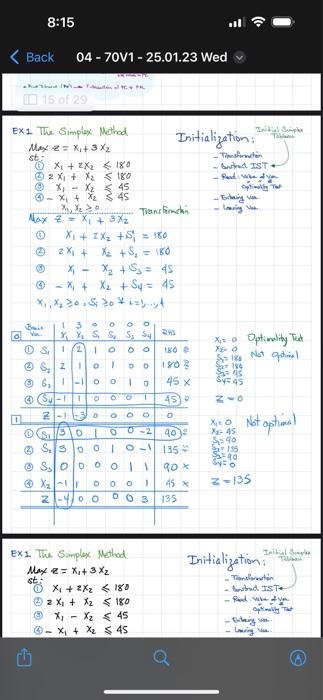 8:15
Back
04 - 70V1 - 25.01.23 Wed
15 of 29
EX1 The Simplex Method
Max z = X1 + 3 X2
st:
① X1 + 2X2 ≤ 180
② 2 X1 + X2 ≤ 180
③ X1 - X2 ≤ 45
④ - X1 + X2 ≤ 45
X1, X2 ≥ 0
Initialization:
Initial Simplex Tableau
- Transformation
- Construct IST
- Read: Value of Var
Optimality Test
- Entering Var
- Leaving Var
Transformation
Max z = X1 + 3X2
① X1 + 2X2 + S1 = 180
② 2X1 + X2 + S2 = 180
③ X1 - X2 + S3 = 45
④ - X1 + X2 + S4 = 45
X1, X2 ≥ 0, Si ≥ 0 ∀ i=1,...,4
1 3 0 0 0 0
0 Basic Var. X1 X2 S1 S2 S3 S4 RHS
① S1 1 2 1 0 0 0 180
② S2 2 1 0 1 0 0 180
③ S3 1 -1 0 0 1 0 45 x
④ S4 -1 1 0 0 0 1 45
Z -1 -3 0 0 0 0 0
X1 = 0
X2 = 0
S1 = 180
S2 = 180
S3 = 45
S4 = 45
Z = 0
Optimality Test
Not optimal
1
① S1 3 0 1 0 0 -2 90
② S2 3 0 0 1 0 -1 135
③ S3 0 0 0 0 1 1 90 x
④ X2 -1 1 0 0 0 1 45 x
Z -4 0 0 0 0 3 135
X1 = 0
X2 = 45
S1 = 90
S2 = 135
S3 = 90
S4 = 0
Z = 135
Not optimal
EX1 The Simplex Method
Max z = X1 + 3 X2
st:
① X1 + 2X2 ≤ 180
② 2 X1 + X2 ≤ 180
③ X1 - X2 ≤ 45
④ - X1 + X2 ≤ 45
Initialization:
Initial Simplex Tableau
- Transformation
- Construct IST
- Read: Value of Var
Optimality Test
- Entering Var
- Leaving Var